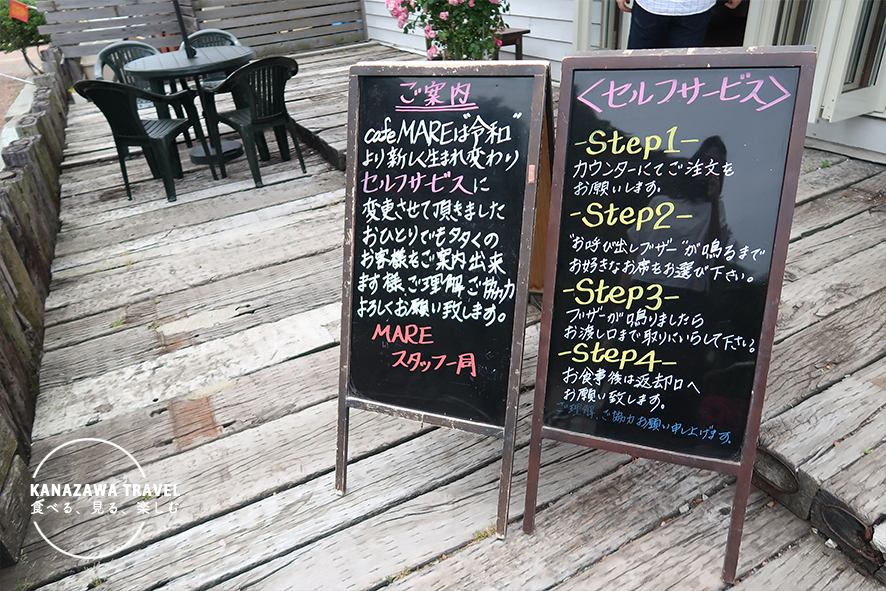 ご案内
cafe MAREは"令和"
より新しく生まれ変わり
セルフサービスに
変更させて頂きました
おひとりでも多くの
お客様をご案内出来
ます様、ご理解ご協力
よろしくお願い致します。
MARE
スタッフ一同
<セルフサービス>
-Step1-
カウンターにてご注文を
お願いします。
-Step2-
"お呼び出しブザー"が鳴るまで
お好きなお席をお選び下さい。
-Step3-
ブザーが鳴りましたら
お渡し口まで取りにいらして下さい。
-Step4-
お食事後は返却口へ
お願い致します。
ご理解、ご協力お願い申し上げます。
KANAZAWA TRAVEL
食べる、見る、楽しむ